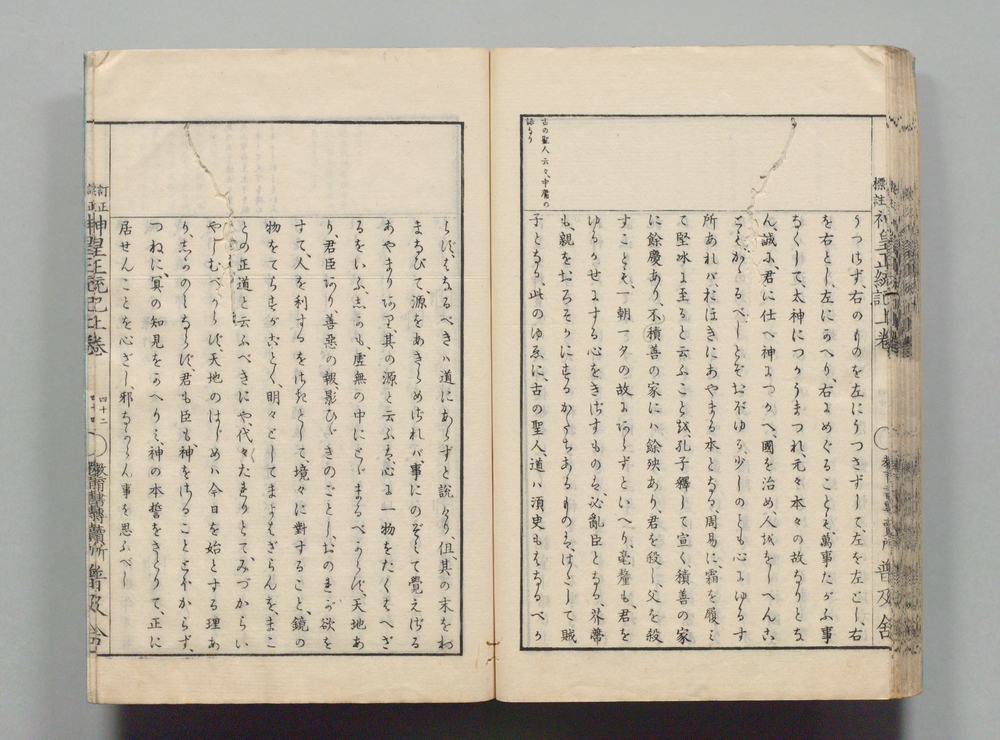 標註神皇正統記上巻
普及舎
古の聖人云々、中庸の
語なり
うつさず、右のものを左にうつさずして、左を左とし、右
を右とし、左にかへり、右にめぐることも萬事たがふ事
なくして、太神につかうまつれ、元々本々の故なりとな
ん、誠に君に仕へ神につかへ、國を治め、人ををしへんこ
とも、かゝるべしとぞおぼゆる、少しのとも心にゆるす
所あれバ、おほきにあやまる本となる、周易に、霜を履ミ
て堅冰に至ると云ふことを、孔子釋して宣く、積善の家
に餘慶あり、不積善の家にハ餘殃あり、君を殺し、父を殺
すことも、一朝一夕の故にあらずといへり、毫釐も、君を
ゆるかせにする心をきざすものハ、必亂臣となる、芥蔕
も、親をおろそかにするかたちあるものハ、はたして賊
子となる、此のゆゑに、古の聖人、道ハ須臾もはなるべか
らず、はなるべきハ道にあらずと説けり、但、其の末をわ
まなびて、源をあきらめざれバ、事にのぞミて覺えざる
あやまりあり、其の源と云ふハ、心に一物をたくはへざ
るをいふ、しかも、虚無の中にとゞまるべからず、天地あ
り、君臣あり、善惡の報、影ひゞきのごとし、おのれが欲を
すて、人を利するをさきとして、境々に對すること、鏡の
物をてらすがごとく、明々としてまよはざらんを、まこ
との正道と云ふべきにや、代くだれりとて、みづからい
やしむべからず、天地のはじめハ今日を始とする理あ
り、しかのミならず、君も臣も、神をさることとほからず、
つねに、冥の知見をかへりミ、神の本誓をさとりて、正に
居せんことを心ざし、邪なからん事を思ふべし
訂正
標註神皇正統記上巻
四十二
普及舎